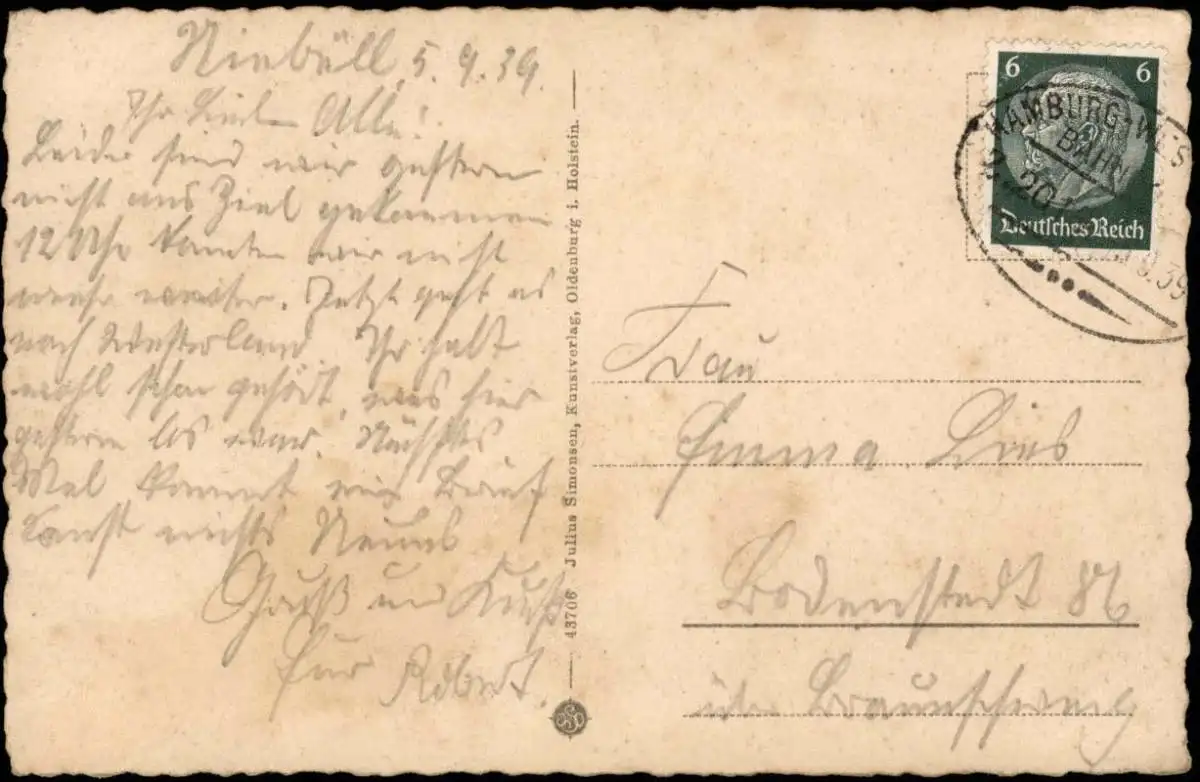 Niebüll, 5.9.39.
Ihr Lieben Alle!
Leider sind wir gestern
nicht ans Ziel gekommen
12 Uhr konnten wir nicht
mehr weiter. Jetzt geht es
nach Westerland. Ihr habt
wohl schon gehört, was hier
gestern los war. Nächstes
Mal kommt ein Brief
sonst nichts Neues
Gruß und Kuß
Euer Robert.
43706 Julius Simonsen, Kunstverlag, Oldenburg i. Holstein.
6 6
Deutsches Reich
HAMBURG-WES
BAHN
Frau
Emma
Bodenstedt 86
über Braunschweig